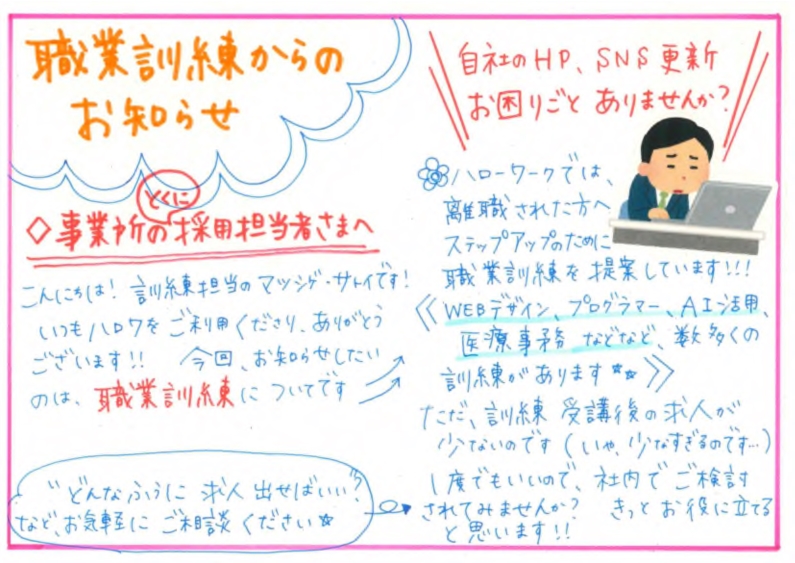 職業訓練からの
お知らせ
とくに
◇事業所の採用担当者さまへ
こんにちは! 訓練担当のマツシゲ・サトイです!
いつもハロワをご利用くださり、ありがとう
ございます!! 今回、お知らせしたい
のは、職業訓練についてです
"どんなふうに求人出せばいい?"
など、お気軽にご相談ください☆
自社のHP、SNS更新
お困りごとありませんか?
ハローワークでは、
離職された方へ
ステップアップのために
職業訓練を提案しています!!!
《WEBデザイン、プログラマー、AI活用、
医療事務などなど、数多くの
訓練があります☆☆》
ただ、訓練受講後の求人が
少ないのです(いや、少なすぎるのです…)
1度でもいいので、社内でご検討
されてみませんか? きっとお役に立てる
と思います!!